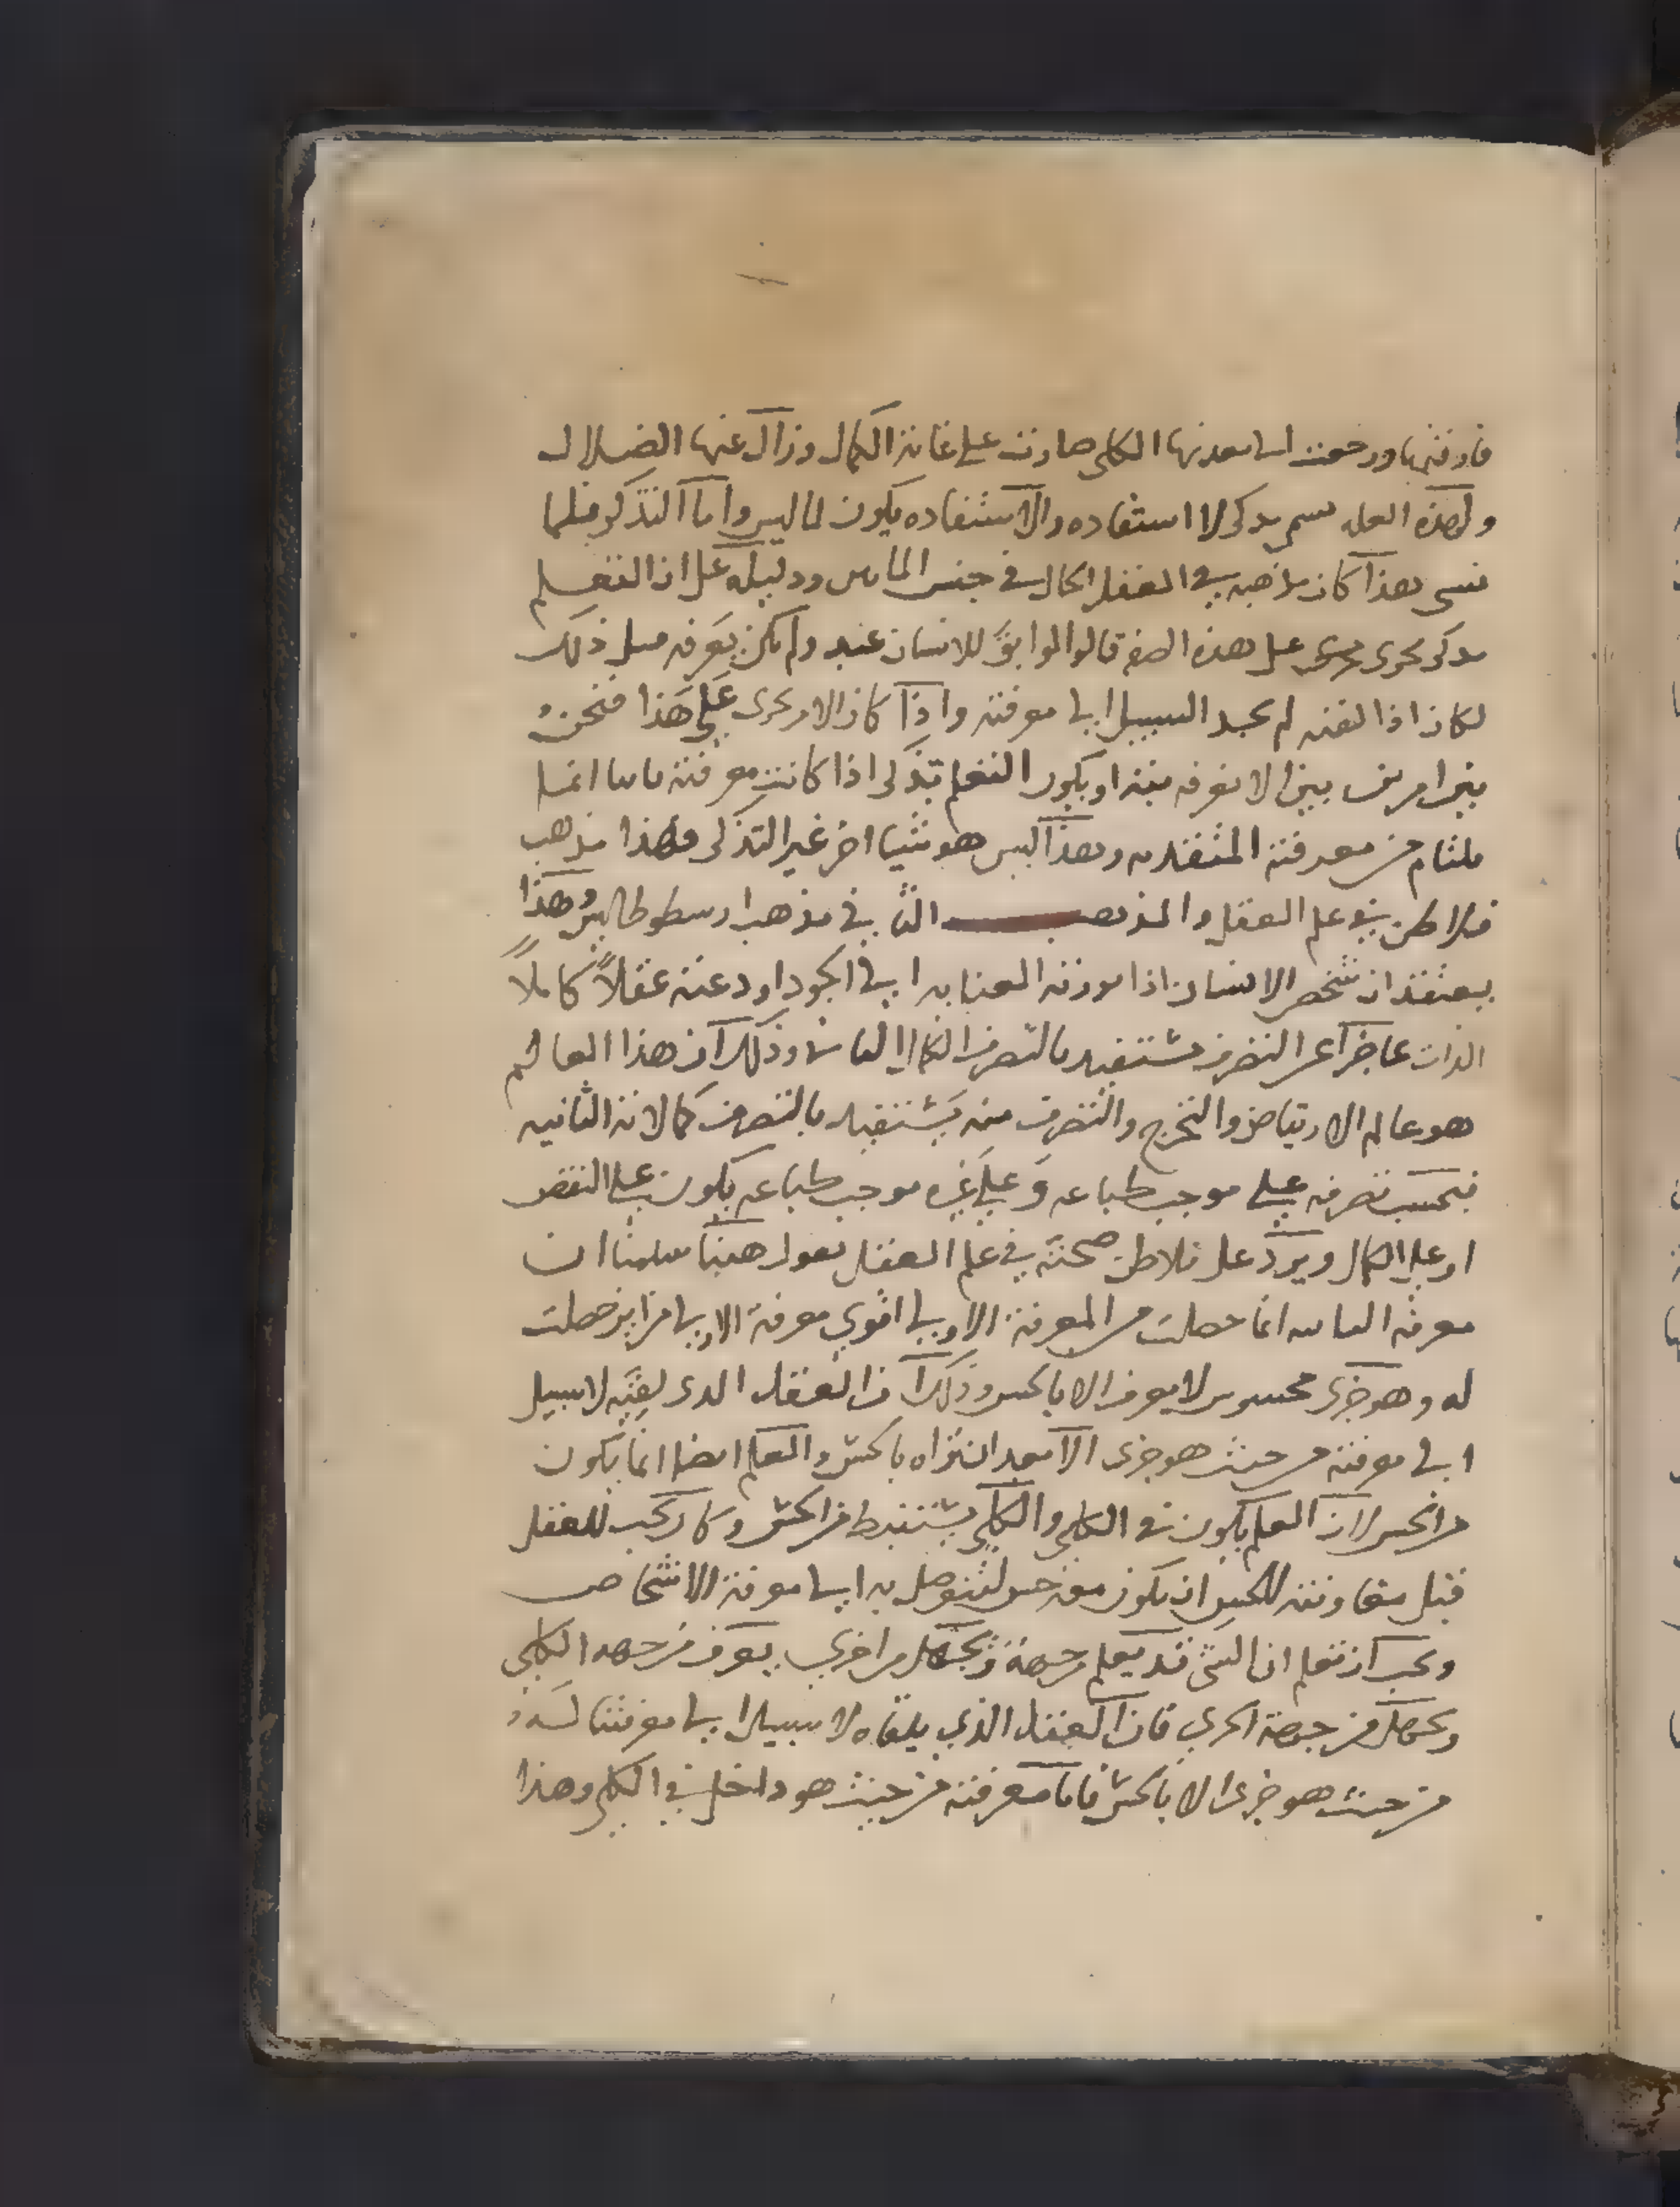 فارقتها ورجعت الى معدنها الكلى صارت على غاية الكمال وزال عنها الضلال
ولهذه العله سمى تذكرا لا استفاده والاستفاده يكون لما ليس واما التذكر فلما
نسى هذا كان مذهبه في العقل الحال في جنس الناس ودليله على ان التعلم
تذكر يجرى على هذه الصفه قالوا لو ابق للانسان عبد ولم يكن يعرفه قبل ذلك
لكان اذا لقيه لم يجد السبيل الى معرفته واذا كان الامر يجرى على هذا فنحن
بين امرين بين الا نعرفه بته او يكون التعلم تذكرا اذا كانت معرفته ثانيا انما
تلتام من معرفته المتقدمه وهذا ليس هو شيا اخر غير التذكر فهذا مذهب
فلاطن في علم العقل والمذهب الثاني مذهب ارسطوطاليس وهذا
يعتقد ان شخص الانسان اذا برزته العنايه الى الوجود اودعته عقلاً كاملاً
الذات عاجزا عن التصرف يستفيد بالتصرف الكمال الثاني وذلك ان هذا العالم
هو عالم الارتياض والتخرج والتصرف منه يستفيد بالتصرف كمالاته الثانيه
فبحسب تصرفه على موجب طباعه وعلى غير موجب طباعه يكون على النقص
او على الكمال ويرد على فلاطن صحته في علم العقل بقول هبنا سلمنا ان
معرفه الثانيه انما حصلت من المعرفة الاولى اقوى معرفة الاولى من اين حصلت
له وهو جزى محسوس لا يعرف الا بالحس وذلك ان العقل الذى لقيه لا سبيل
الى معرفته من حيث هو جزى الا بعد ان يراه بالحس والعلم ايضا انما يكون
من الحس لان العلم يكون في الكلى والكلى يستنبط من الحس وكان يجب للعقل
قبل مقارنته للحس ان يكون معه حس ليتوصل به الى معرفة الاشخاص
ويجب ان تعلم ان الشى قد يعلم من جهة ويجهل من اخرى يعرف من جهه الكلى
ويجهل من جهة اخرى فان العقل الذي يلقاه لا سبيل الى معرفتنا له
من حيث هو جزى الا بالحس فاما معرفته من حيث هو داخل في الكلى وهذا